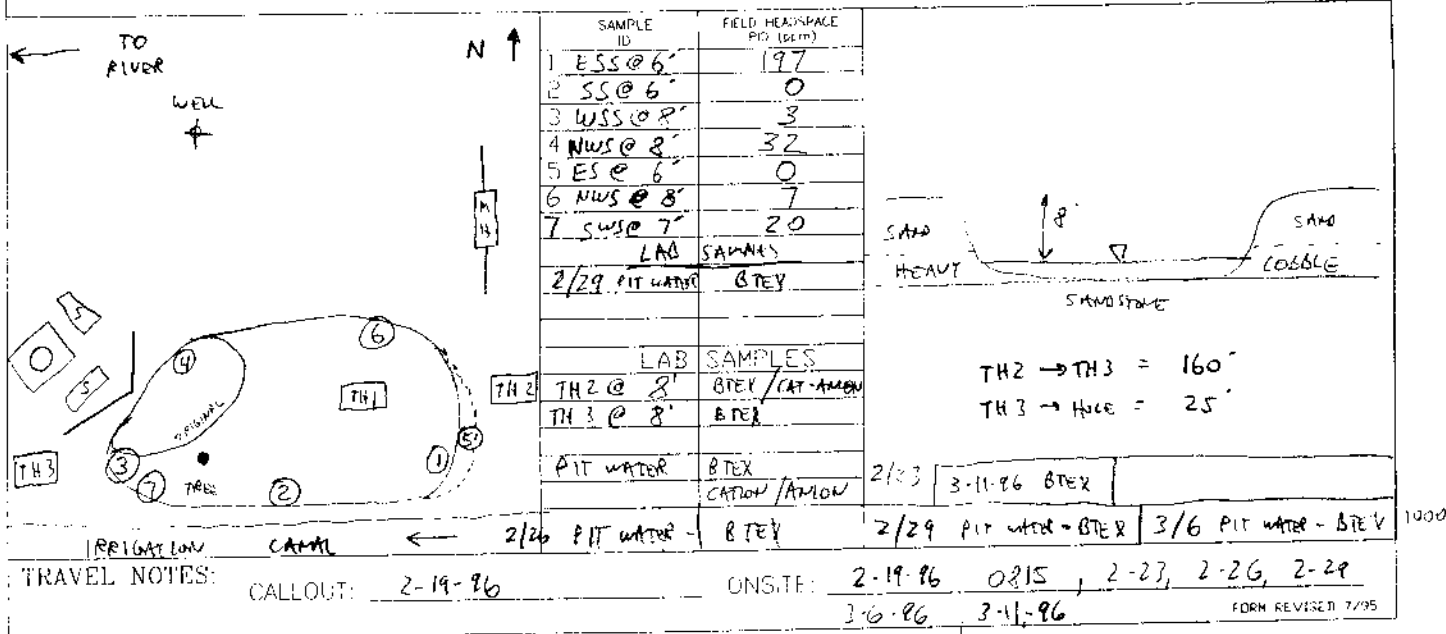 TO
RIVER
N
WELL
M
H
S
S
4
6
ORIGINAL
TH1
TH2
TH3
3
7
TREE
2
1
5
IRRIGATION CANAL
SAMPLE ID FIELD HEADSPACE PID (ppm)
1 ESS @ 6' 197
2 SS @ 6' 0
3 WSS @ 8' 3
4 NWS @ 8' 32
5 ES @ 6' 0
6 NWS @ 8' 7
7 SWS @ 7' 20
LAB SAMPLES
2/29 PIT WATER BTEX
LAB SAMPLES
TH2 @ 8' BTEX/CAT-ANION
TH3 @ 8' BTEX
PIT WATER BTEX
CATION/ANION
2/26 PIT WATER - BTEX
SAND
HEAVY
8'
SAND
COBBLE
SANDSTONE
TH2 → TH3 = 160'
TH3 → HOLE = 25'
2/23 3-11-96 BTEX
2/29 PIT WATER - BTEX 3/6 PIT WATER - BTEX 1000
TRAVEL NOTES: CALLOUT: 2-19-96 ONSITE: 2-19-96 0815, 2-23, 2-26, 2-29
3-6-96 3-11-96 FORM REVISED 7/95